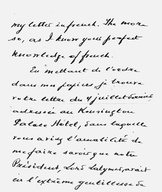 my letter in french. The more
so, as I know your perfect
knowledge of french.
En mettant de l'ordre
dans mes papiers je trouve
votre lettre du 9 juillet
adressée au Kensington
Palace Hotel, dans laquelle
vous avez l'amabilité de
me faire savoir que votre
Président, Lord
eu l'extrême gentillesse de